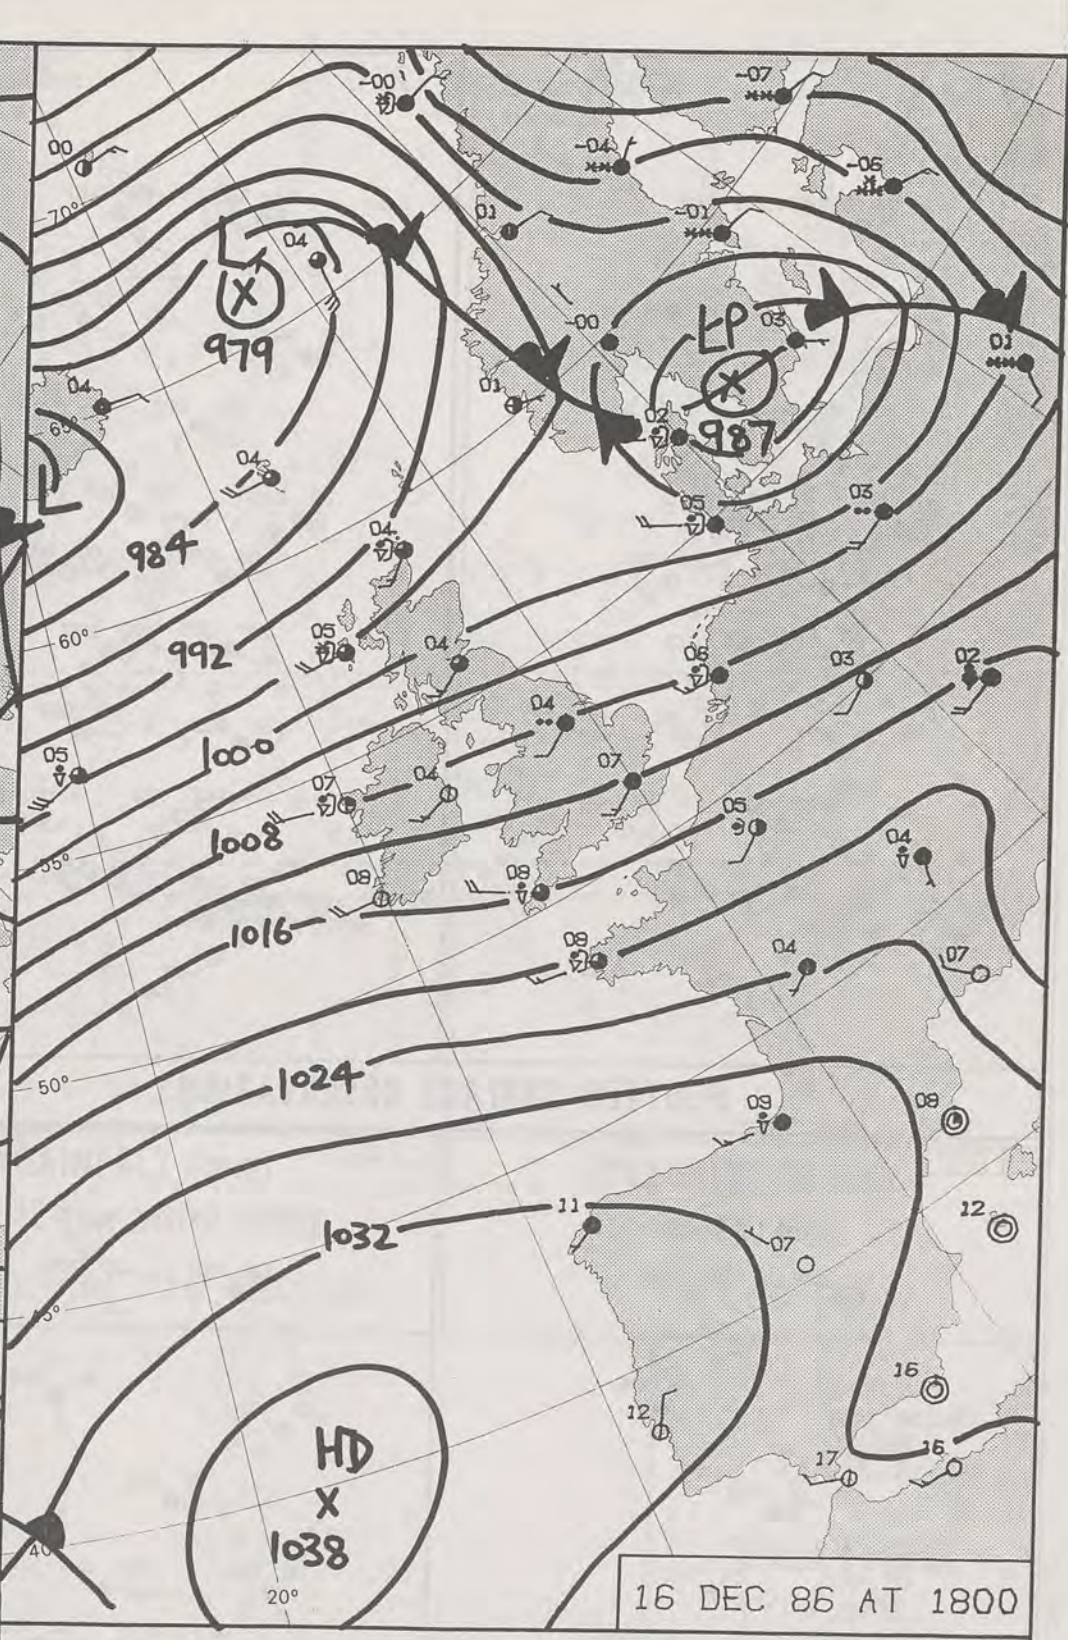 -00
-07
00
-04
-06
70°
01
-01
L
04
979
LP
03
-00
01
04
01
987
02
65°
04
L
05
03
984
04
60°
992
05
04
06
03
02
04
1000
05
07
04
07
05
1008
04
55°
08
08
1016
08
04
07
50°
1024
09
08
11
12
1032
07
45°
16
12
HD
17
16
1038
40°
20°
16 DEC 86 AT 1800